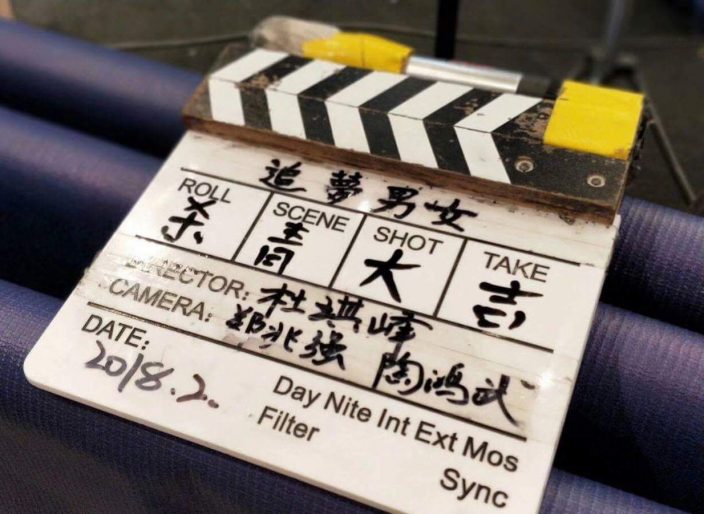 追夢男女
ROLL SCENE SHOT TAKE
杀 青 大 吉
DIRECTOR: 杜琪峰
CAMERA: 郑兆强 陶鸿武
DATE:
2018.2.
Day Nite Int Ext Mos
Filter Sync